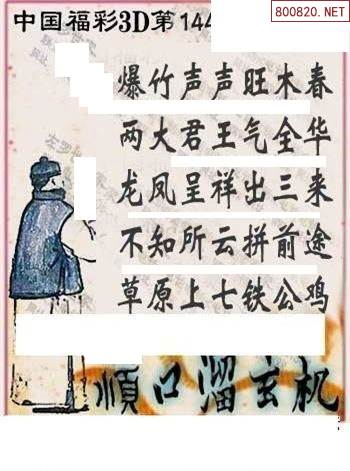 800820.NET
中国福彩3D第144
爆竹声声旺木春
两大君王气全华
龙凤呈祥出三来
不知所云拼前途
草原上七铁公鸡
顺口溜玄机